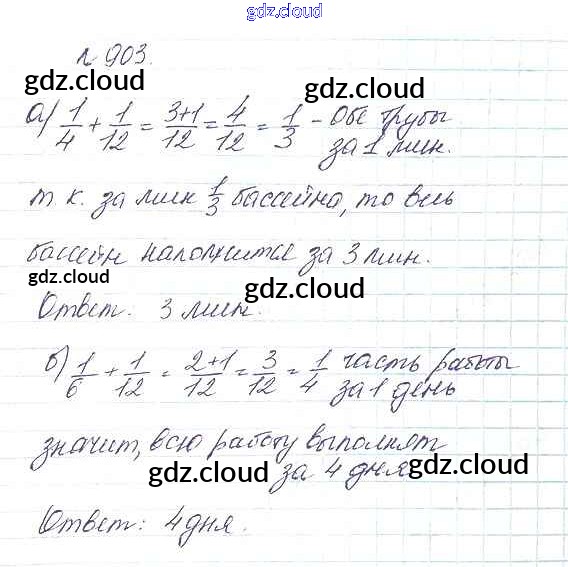 gdz.cloud
№ 903.
gdz.cloud gdz.cloud
а) 1/4 + 1/12 = 3+1/12 = 4/12 = 1/3 - Обе трубы
за 1 мин.
gdz.cloud gdz.cloud
т. к. за мин 1/3 бассейна, то весь
бассейн наполнится за 3 мин.
gdz.cloud gdz.cloud
Ответ: 3 мин.
б) 1/6 + 1/12 = 2+1/12 = 3/12 = 1/4 часть работы
за 1 день
gdz.cloud gdz.cloud
значит, всю работу выполнят
за 4 дня
gdz.cloud gdz.cloud
Ответ: 4 дня.